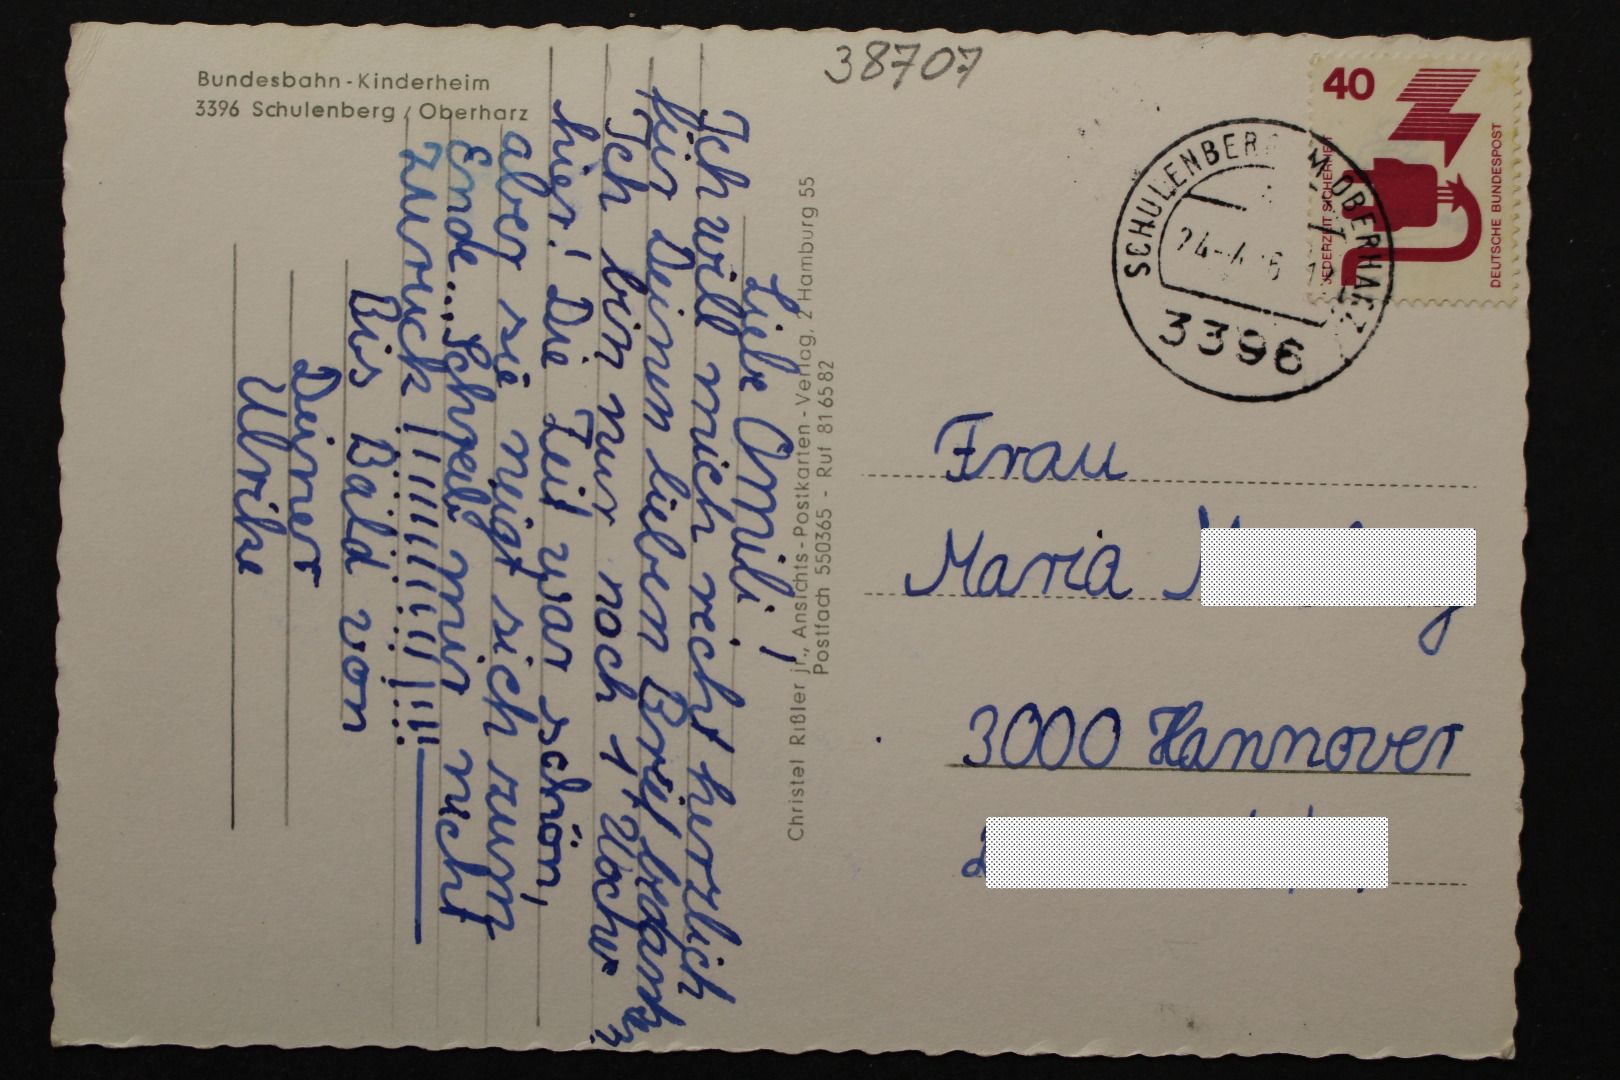 Bundesbahn-Kinderheim
3396 Schulenberg / Oberharz
38707
Liebe Omili!
Ich will mich recht herzlich
für Deinen lieben Brief bedanken
Ich bin nur noch 1 Woche
hier! Die Zeit war schön,
aber sie neigt sich zum
Ende... Schreib mir nicht
zurück!!!!!!!!!!!!
Bis Bald von
Deiner
Ulrike
Christel Rißler jr., Ansichts-Postkarten-Verlag, 2 Hamburg 55
Postfach 550365 - Ruf 816582
40
JEDERZEIT SICHERHEIT
DEUTSCHE BUNDESPOST
SCHULENBERG OBERHARZ
24.-4.
3396
Frau
Maria
3000 Hannover